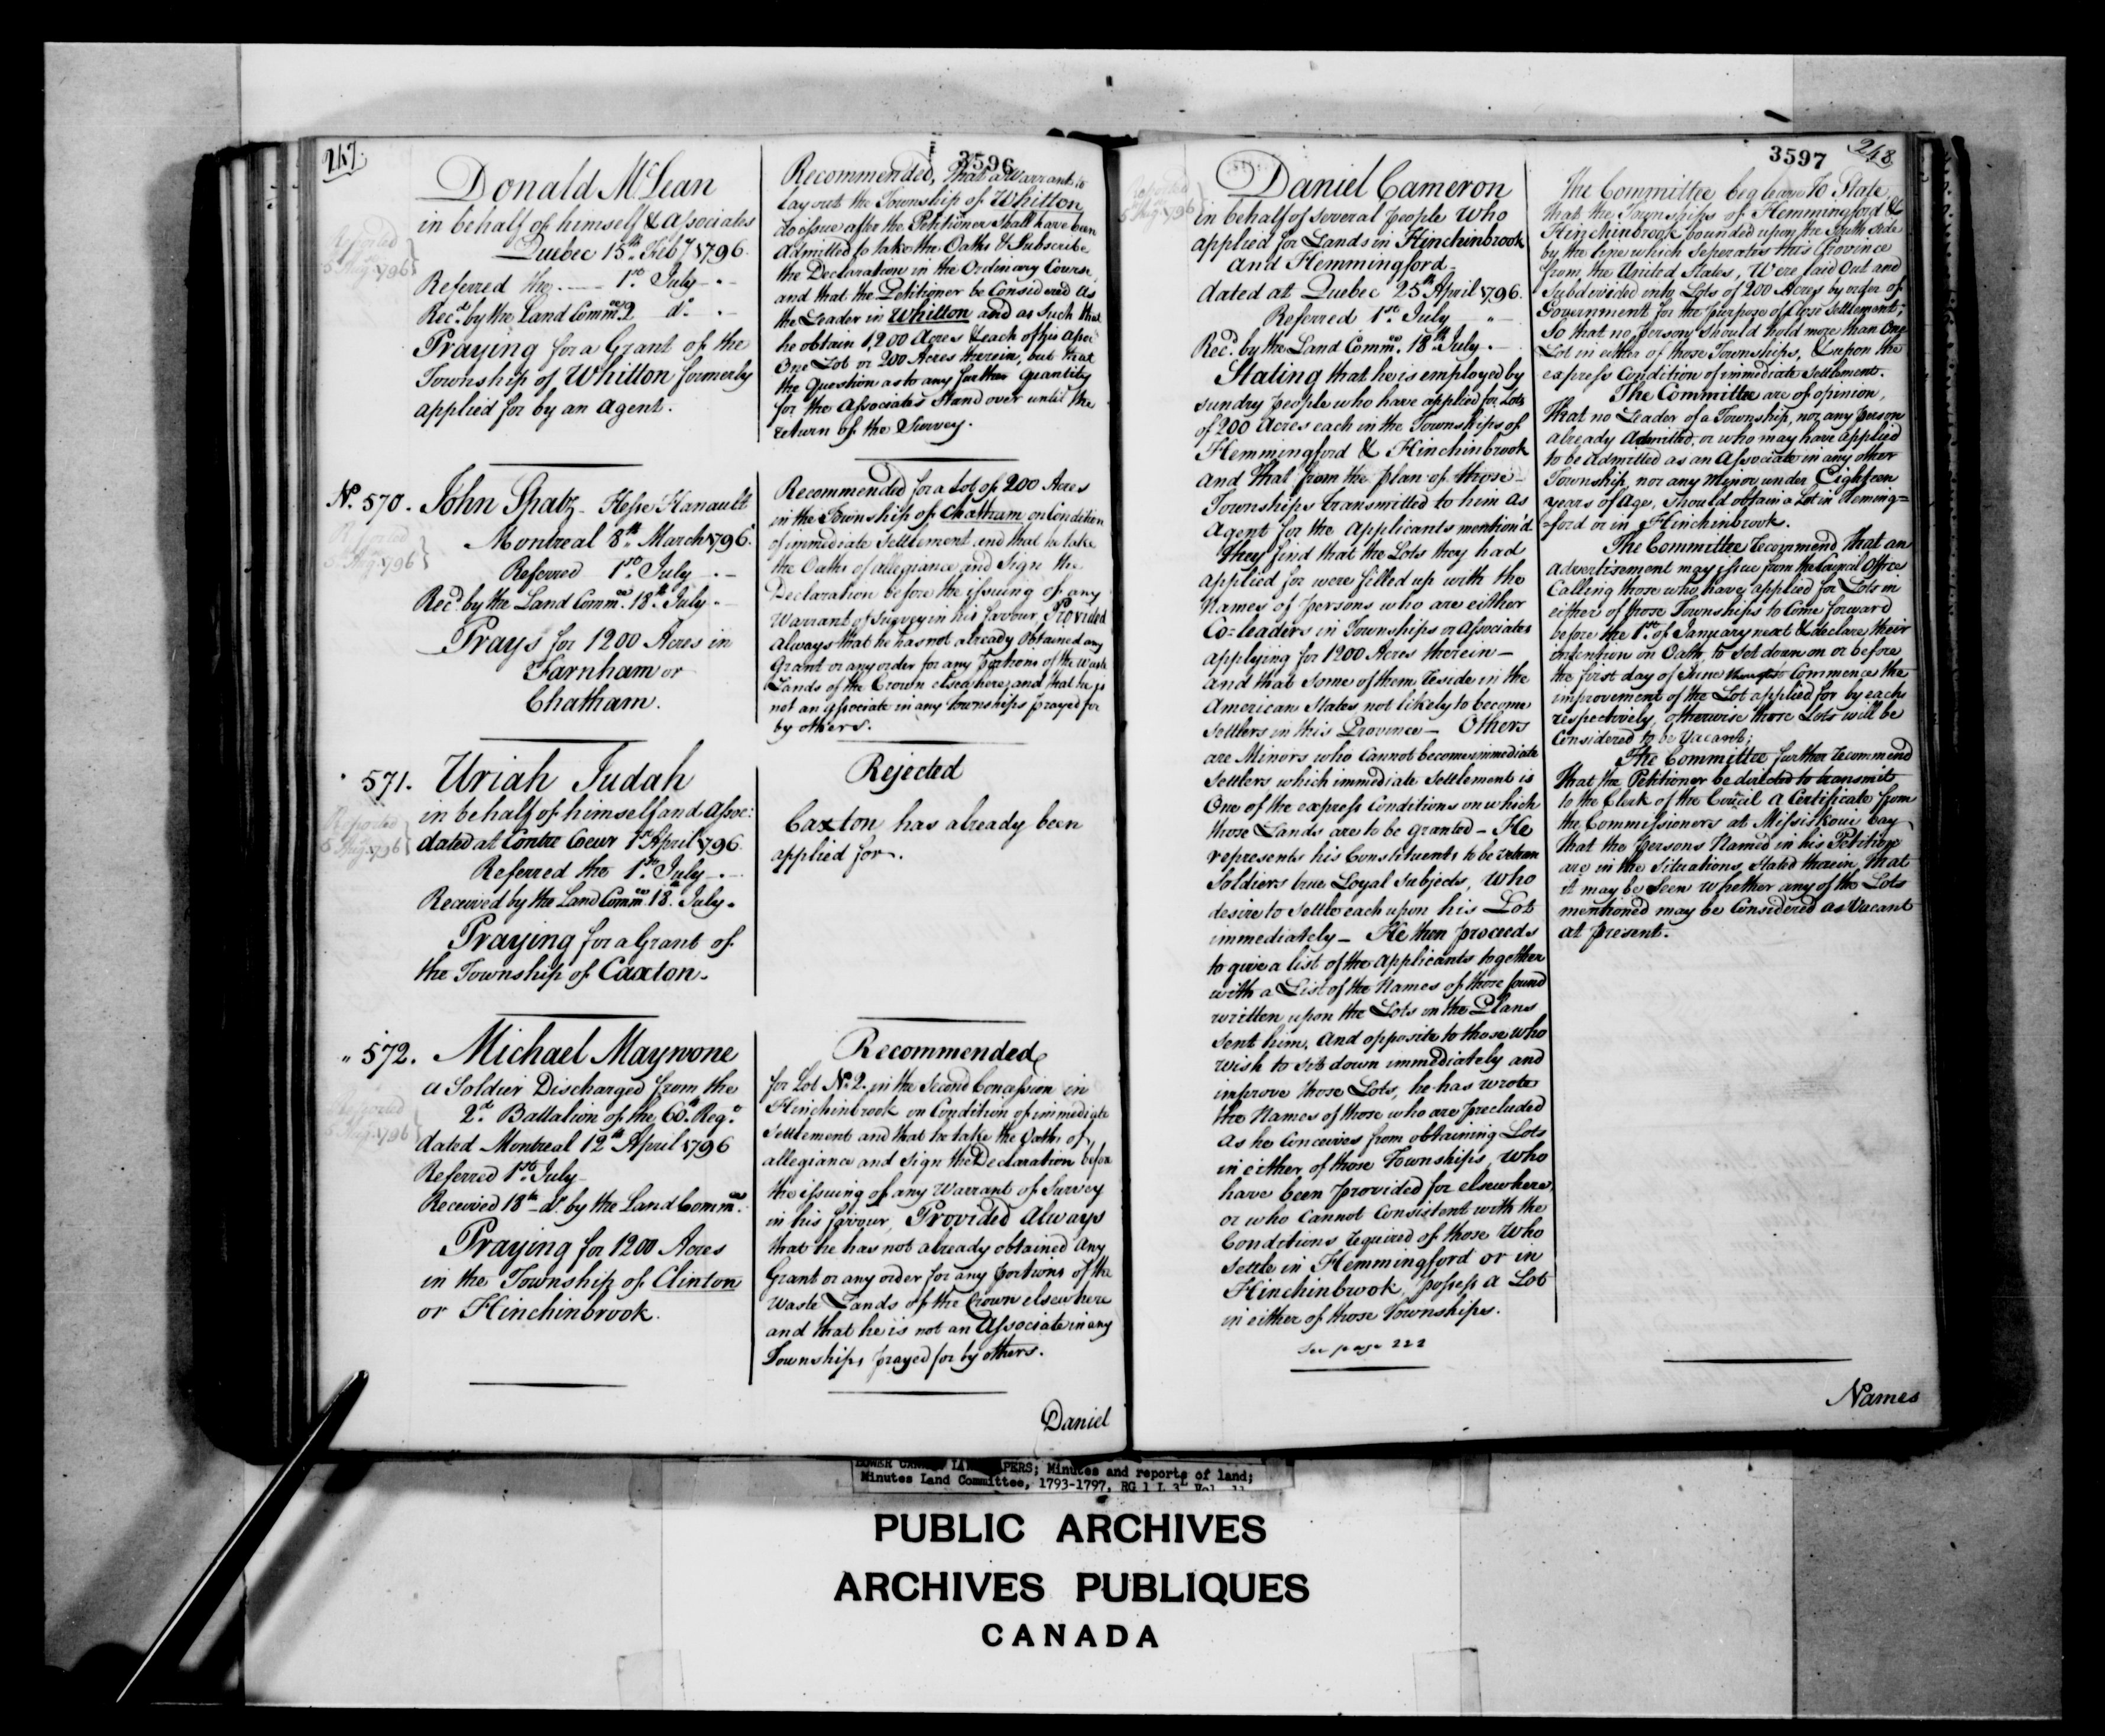 247.
3596
Donald McLean
in behalf of himself & Associates
Quebec 15th Feby 1796.
Reported
5 Augt 1796
Referred the 1st July
Recd by the Land Commee 2 do
Praying for a Grant of the
Township of Whitton formerly
applied for by an Agent.
Recommended, That a Warrant to
lay out the Township of Whitton
do issue after the Petitioner Shall have been
admitted to take the Oaths & Subscribe
the Declaration in the Ordinary Course,
and that the Petitioner be Considered as
the Leader in Whitton and as Such that
he obtain 1,200 Acres & each of his Assoc
One Lot or 200 Acres therein, but that
the Question as to any further Quantity
for the Associates Stand over until the
return of the Survey.
No. 570. John Spatz Hesse Hanault
Montreal 8th March 1796.
Reported
5 Augt 1796
Referred 1st July
Recd by the Land Commee 18th July
Prays for 1200 Acres in
Farnham or
Chatham.
Recommended for a Lot of 200 Acres
in the Township of Chatham on Condition
of immediate Settlement and that he take
the Oaths of allegiance and Sign the
Declaration before the issuing of any
Warrant of Survey in his favour, Provided
Always that he has not already obtained any
Grant or any order for any portions of the Waste
Lands of the Crown elsewhere; and that he is
not an Associate in any Townships prayed for
by others.
571. Uriah Judah
in behalf of himself and Assoc:
dated at Contre Coeur 1st April 1796
Reported
5 Augt 1796
Referred the 1st July
Received by the Land Commee 18th July.
Praying for a Grant of
the Township of Caxton.
Rejected
Caxton has already been
applied for.
" 572. Michael Maywone
a Soldier Discharged from the
2d Battalion of the 60th Regt
Reported
5 Augt 1796
dated Montreal 12th April 1796
Referred 1st July
Received 18th do by the Land Commee
Praying for 1200 Acres
in the Township of Clinton
or Hinchinbrook.
Recommended
for Lot No. 2. in the Second Concession in
Hinchinbrook on Condition of immediate
Settlement and that he take the Oaths of
allegiance and Sign the Declaration before
the issuing of any Warrant of Survey
in his favour, Provided Always
that he has not already obtained Any
Grant or any order for any portions of the
Waste Lands of the Crown elsewhere
and that he is not an Associate in any
Townships prayed for by others.
Daniel
3597
248
Daniel Cameron
Reported
5 Augt 1796
in behalf of Several people Who
applied for Lands in Hinchinbrook
and Hemmingford
dated at Quebec 25th April 1796.
Referred 1st July "
Recd by the Land Commee 18th July.
Stating that he is employed by
sundry people who have applied for Lots
of 200 Acres each in the Townships of
Hemmingford & Hinchinbrook
and that from the plan of those
Townships transmitted to him as
Agent for the Applicants mention'd
they find that the Lots they had
applied for were filled up with the
Names of persons who are either
Co=leaders in Townships or Associates
applying for 1200 Acres therein —
and that Some of them reside in the
American States not likely to become
Settlers in this Province — Others
are Minors who Cannot become immediate
Settlers which immediate Settlement is
One of the express Conditions on which
those Lands are to be granted — He
represents his Constituents to be veteran
Soldiers true Loyal Subjects, Who
desire to Settle each upon his Lot
immediately — He then proceeds
to give a list of the applicants together
with a List of the Names of those found
written upon the Lots on the Plans
Sent him, And opposite to those who
wish to Sit down immediately and
improve those Lots, he has wrote
the Names of those who are precluded
as he Conceives from obtaining Lots
in either of those Townships, Who
have been provided for elsewhere,
or who Cannot Consistent with the
Conditions required of those Who
Settle in Hemmingford or in
Hinchinbrook, possess a Lot
in either of those Townships.
See page 222
The Committee beg leave to State
that the Townships of Hemmingford &
Hinchinbrook bounded upon the South Side
by the line which Seperates this Province
from the United States, Were laid Out and
Subdivided into Lots of 200 Acres by order of
Government for the purpose of Close Settlement;
So that no person Should hold more than One
Lot in either of those Townships, & upon the
express Condition of immediate Settlement.
The Committee are of opinion,
That no Leader of a Township, nor any person
already Admitted or who may have applied
to be Admitted as an Associate in any other
Township, nor any Minor under Eighteen
years of Age, Should obtain a Lot in Heming=
=ford or in Hinchinbrook.
The Committee recommend that an
Advertisement may issue from the Council Office
Calling those who have applied for Lots in
either of those Townships to Come forward
before the 1st of January next & declare their
intention on Oath, to Set down on or before
the first day of June to Commence the
improvement of the Lot applied for by each
respectively, otherwise those Lots will be
Considered to be Vacant;
The Committee further recommend
That the Petitioner be directed to transmit
to the Clerk of the Council a Certificate from
the Commissioners at Missiskoui bay
that the persons Named in his Petition
are in the Situations Stated therein, that
it may be Seen Whether any of the Lots
mentioned may be Considered as Vacant
at present.
Names
LOWER CANADA LAND PAPERS; Minutes and reports of land;
Minutes Land Committee, 1793-1797, RG 1 L 3L Vol. 11
PUBLIC ARCHIVES
ARCHIVES PUBLIQUES
CANADA